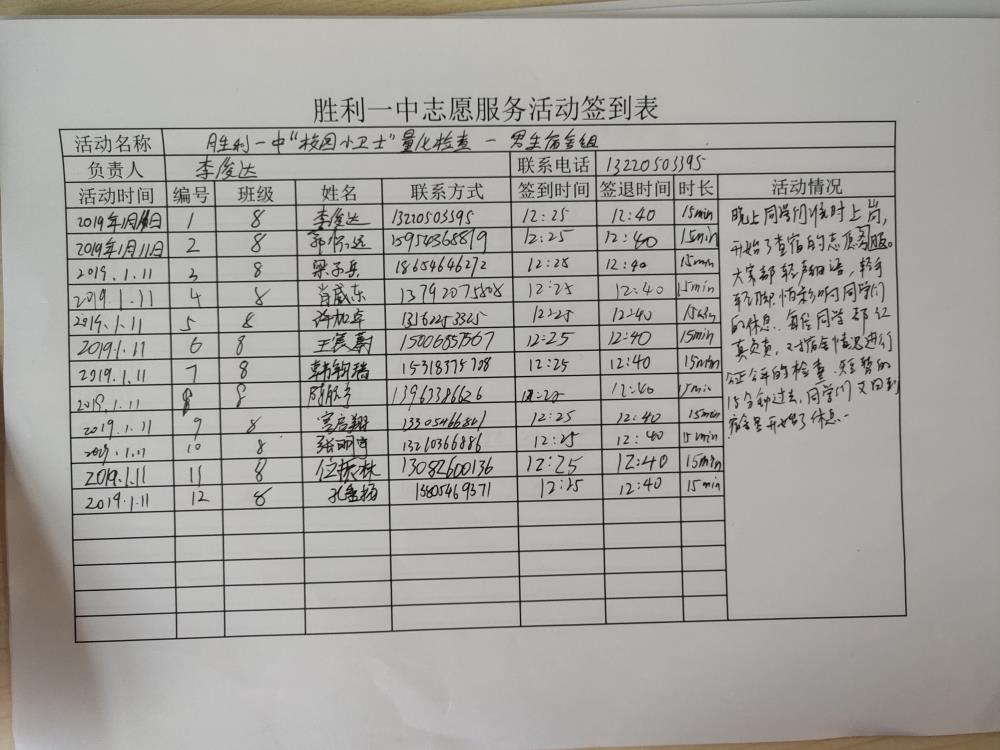 胜利一中志愿服务活动签到表
活动名称 胜利一中“校园小卫士”量化检查 - 男生宿舍组
负责人 李俊达 联系电话 13220503395
活动时间 编号 班级 姓名 联系方式 签到时间 签退时间 时长 活动情况
2019年1月11日 1 8 李俊达 13220503395 12:25 12:40 15min
2019年1月11日 2 8 15954368819 12:25 12:40 15min
2019.1.11 3 8 梁子岳 18654646272 12:25 12:40 15min
2019.1.11 4 8 肖威东 13792075808 12:25 12:40 15min
2019.1.11 5 8 许加卓 13162253325 12:25 12:40 15min
2019.1.11 6 8 15006857567 12:25 12:40 15min
2019.1.11 7 8 15318375708 12:25 12:40 15min
2019.1.11 8 8 13963386626 12:25 12:40 15min
2019.1.11 9 8 12:25 12:40 15min
2019.1.11 10 8 13260366886 12:25 12:40 15min
2019.1.11 11 8 位振林 13082600136 12:25 12:40 15min
2019.1.11 12 8 13805469371 12:25 12:40 15min
晚上同学们准时上岗,
开始了查宿的志愿服务。
大家都轻声细语,轻手
轻脚怕影响同学们
的休息. 每位同学都认
真负责,对宿舍情况进行
公正公平的检查.短暂的
15分钟过去,同学们又回到
宿舍里开始了休息.